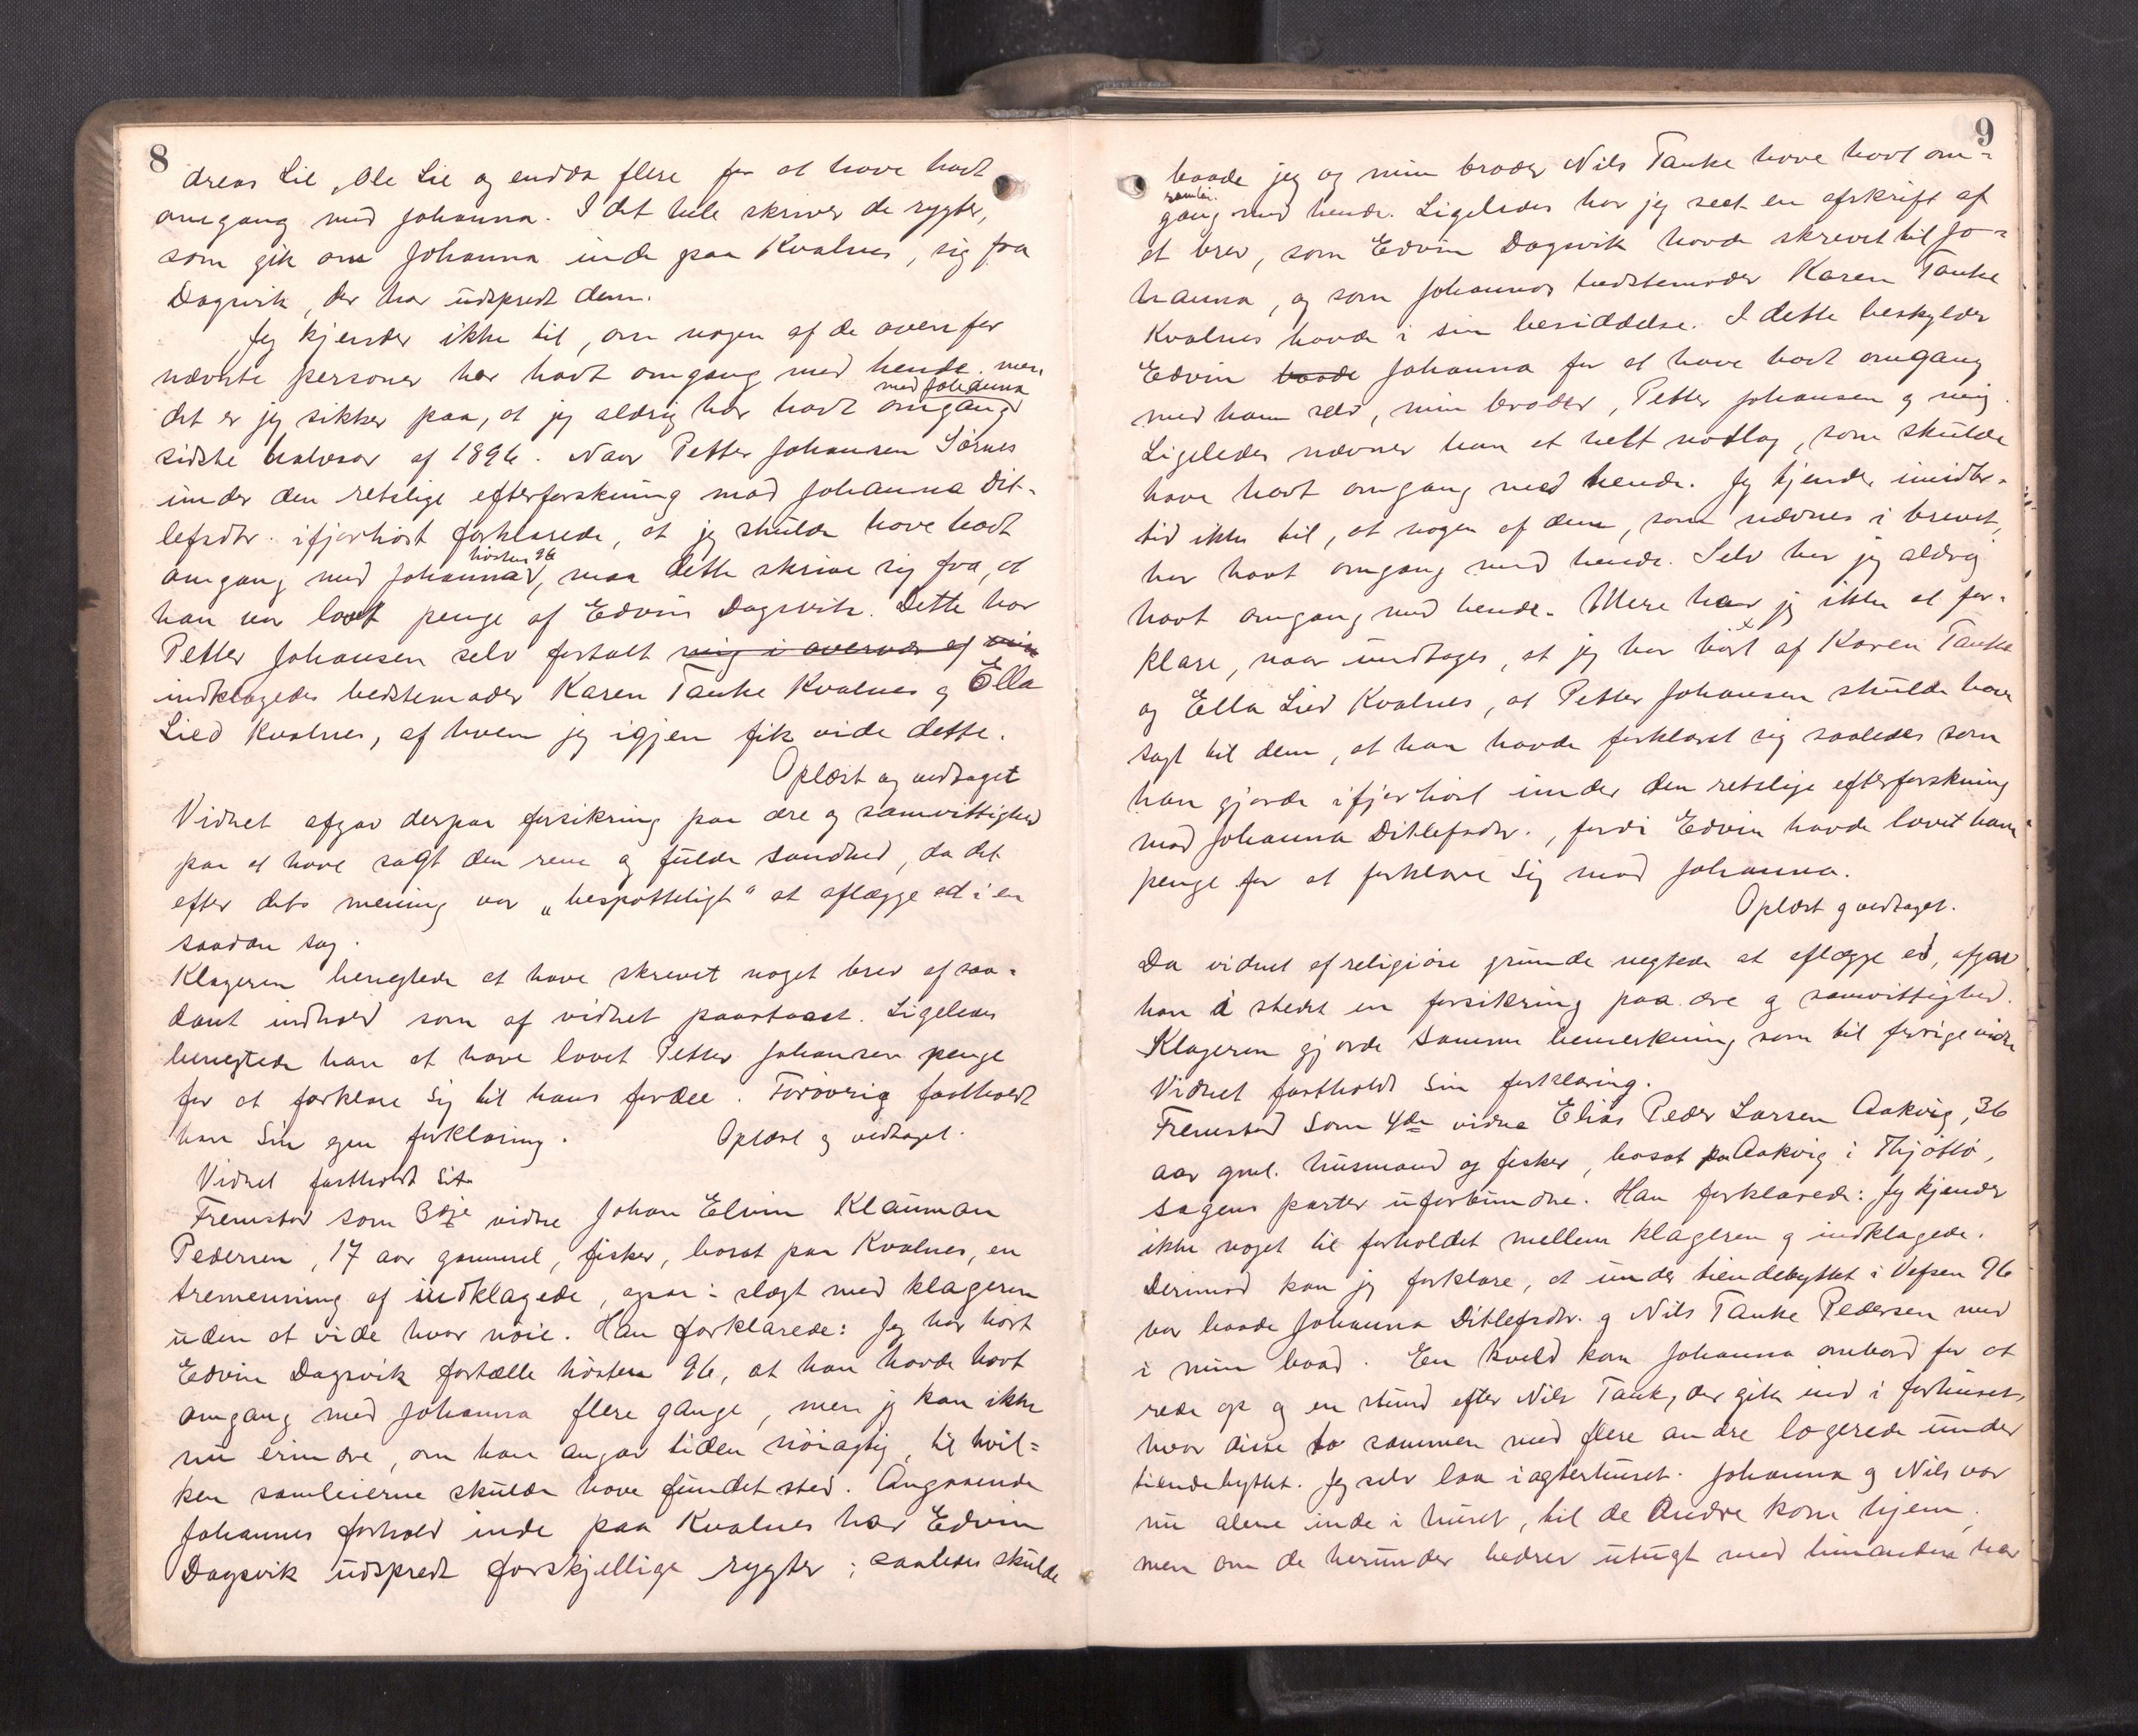 8
dreas Lie, Ole Lie og endda flere for at have havt
omgang med Johanna. I det hele skriver de rygter,
som gik om Johanna inde paa Kvalnes, sig fra
Dagsvik, der har udspredt dem.
Jeg kjender ikke til, om nogen af de ovenfor
nævnte personer har havt omgang med hende, men
med Johanna
det er jeg sikker paa, at jeg aldrig har havt omgang
sidste halvaar af 1896. Naar Petter Johansen Sörnes
under den retslige efterforskning mod Johanna Dit-
lefsdtr. ifjorhöst forklarede, at jeg skulde have havt
hösten 96
omgang med Johanna, maa dette skrive sig fra, at
han var lovet penge af Edvin Dagsvik. Dette har
Petter Johansen selv fortalt mig i overvær af min
indklagedes bedstemoder Karen Tanke Kvalnes og Ella
Lied Kvalnes, af hvem jeg igjen fik vide dette.
Oplæst og vedtaget
Vidnet afgav derpaa forsikring paa ære og samvittighed
paa at have sagt den rene og fulde sandhed, da det
efter dets mening var „bespotteligt" at aflægge ed i en
saadan sag.
Klageren benegtede at have skrevet noget brev af saa-
dant indhold som af vidnet paastaaet. Ligeledes
benegtede han at have lovet Petter Johansen penge
for at forklare sig til hans fordel. Forövrig fastholdt
han sin egen forklaring. Oplæst og vedtaget.
Vidnet fastholdt sit.
Fremstod som 3die vidne Johan Elvin Klauman
Pedersen, 17 aar gammel, fisker, bosat paa Kvalnes, en
tremenning af indklagede, ogsaa i slægt med klageren
uden at vide hvor nöie. Han forklarede: Jeg har hört
Edvin Dagsvik fortælle hösten 96, at han havde havt
omgang med Johanna flere gange, men jeg kan ikke
nu erindre, om han angav tiden nöiagtig, til hvil-
ken samleierne skulde have fundet sted. Angaaende
Johannes forhold inde paa Kvalnes har Edvin
Dagsvik udspredt forskjellige rygter; saaledes skulde
9
baade jeg og min broder Nils Tanke have havt om-
samlei.
gang med hende. Ligeledes har jeg seet en afskrift af
et brev, som Edvin Dagsvik havde skrevet til Jo-
hanna, og som Johannas bedstemoder Karen Tanke
Kvalnes havde i sin besiddelse. I dette beskylder
Edvin baade Johanna for at have havt omgang
med ham selv, min broder, Petter Johansen og mig.
Ligeledes nævner han et helt notlag, som skulde
have havt omgang med hende. Jeg kjender imidler-
tid ikke til, at nogen af dem, som nævnes i brevet,
har havt omgang med hende. Selv har jeg aldrig
havt omgang med hende. Mere har jeg ikke at for-
klare, naar undtages, at jeg har hört af Karen Tanke
og Ella Lied Kvalnes, at Petter Johansen skulde have
sagt til dem, at han havde forklaret sig saaledes som
han gjorde ifjorhöst under den retslige efterforskning
mod Johanna Ditlefsdtr., fordi Edvin havde lovet ham
penge for at forklare sig mod Johanna.
Oplæst og vedtaget.
Da vidnet af religiöse grunde negtede at aflægge ed, afgav
han i stedet en forsikring paa ære og samvittighed.
Klageren gjorde samme bemerkning som til forrige vidne
Vidnet fastholdt sin forklaring.
Fremstod som 4de vidne Elias Peder Larsen Aakvig, 36
aar gml. husmand og fisker, bosat paa Aakvig i Thjöttö,
sagens parter uforbundne. Han forklarede: Jeg kjender
ikke noget til forholdet mellem klageren og indklagede.
Derimod kan jeg forklare, at under tiendebyttet i Vefsen 96
var baade Johanna Ditlefsdtr. og Nils Tanke Pedersen med
i min baad. En kveld kom Johanna ombord for at
rede op og en stund efter Nils Tank, der gik ind i forhuset,
hvor disse to sammen med flere andre logerede under
tiendebyttet. Jeg selv laa i agterhuset. Johanna og Nils var
nu alene inde i huset, til de andre kom hjem,
men om de herunder bedrev utugt med hinanden har